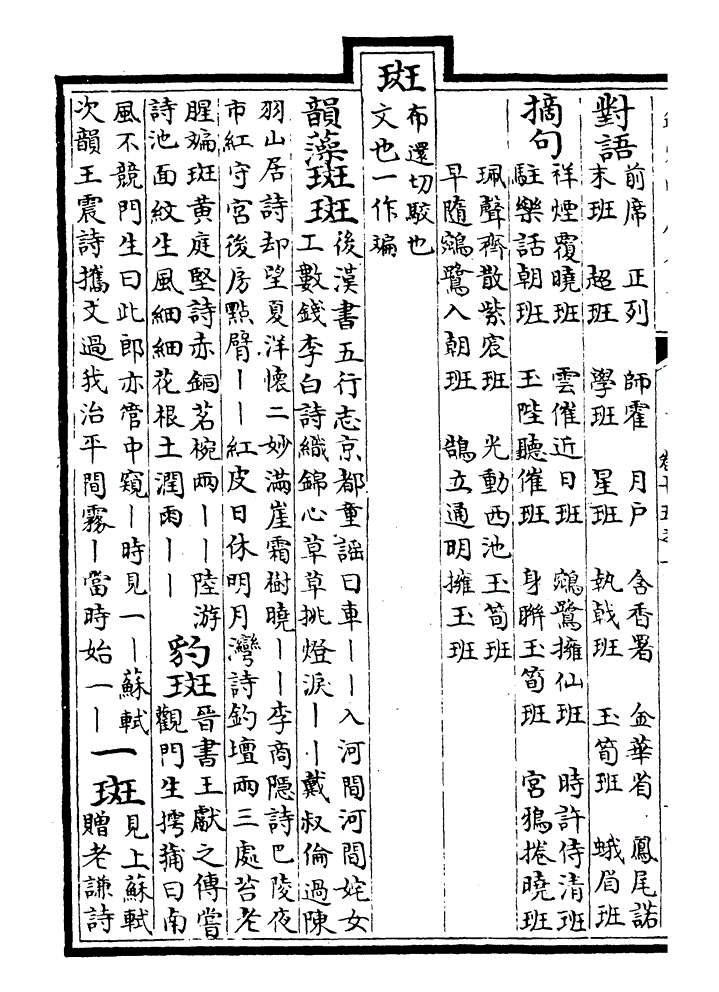 對語
前席 正列 師霍 月戶 含香署 金華省 鳳尾諾
末班 超班 學班 星班 執戟班 玉筍班 蛾眉班
摘句
祥煙覆曉班 雲催近日班 鵷鷺擁仙班 時許侍清班
駐樂話朝班 玉陛聽催班 身聯玉筍班 宮鴉捲曉班
珮聲齊散紫宸班 光動西池玉筍班
早隨鵷鷺入朝班 鵠立通明擁玉班
斑
布還切駮也
文也一作斒
韻藻斑斑
後漢書五行志京都童謡曰車——入河間河間姹女
工數錢李白詩織錦心草草挑燈淚——戴叔倫過陳
羽山居詩却望夏洋懷二妙滿崖霜樹曉——李商隱詩巴陵夜
市紅守宮後房點臂——紅皮日休明月灣詩釣壇兩三處苔老
腥斒斑黄庭堅詩赤銅茗椀兩——陸游
詩池面紋生風細細花根土潤雨——
豹斑
晉書王獻之傳嘗
觀門生摴蒱曰南
風不競門生曰此郎亦管中窺—時見一—蘇軾
次韻王震詩攜文過我治平間霧—當時始一—
一斑
見上蘇軾
贈老謙詩